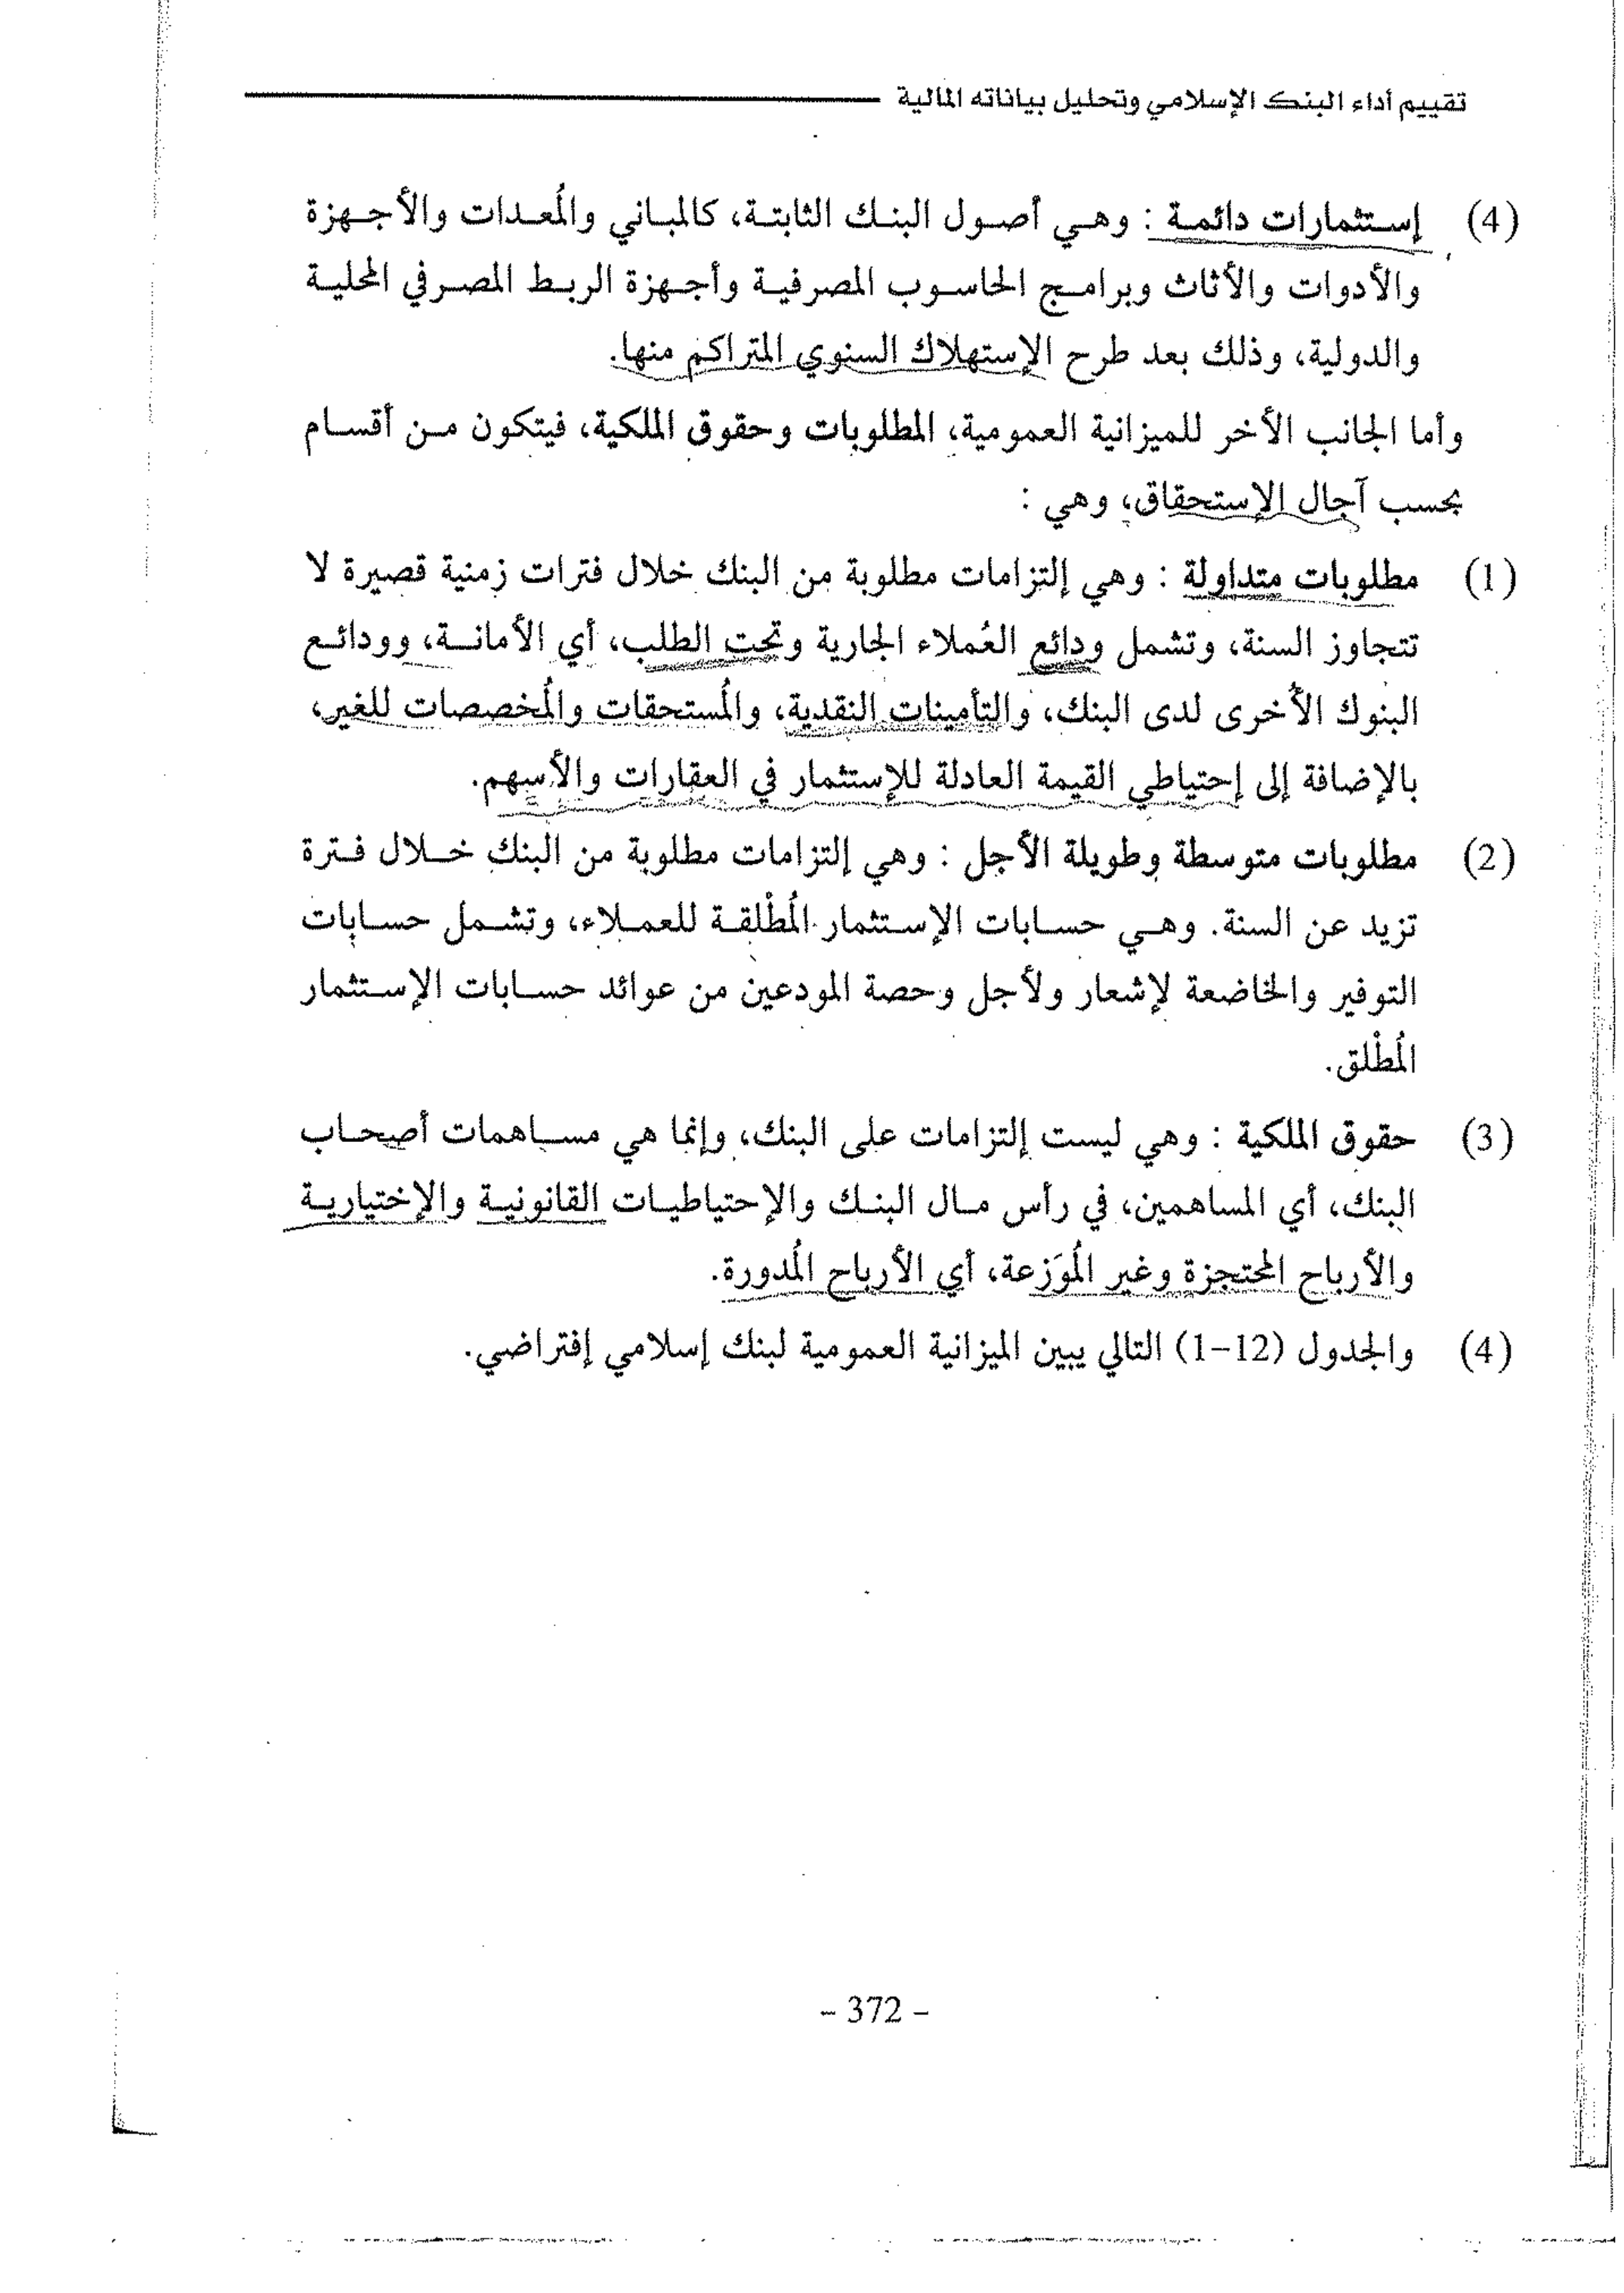 تقييم أداء البنك الإسلامي وتحليل بياناته المالية
(4) إستثمارات دائمة : وهي أصول البنك الثابتة، كالمباني والمُعدات والأجهزة
والأدوات والأثاث وبرامج الحاسوب المصرفية وأجهزة الربط المصرفي المحلية
والدولية، وذلك بعد طرح الإستهلاك السنوي المتراكم منها.
وأما الجانب الأخر للميزانية العمومية، المطلوبات وحقوق الملكية، فيتكون من أقسام
بحسب آجال الإستحقاق، وهي :
(1) مطلوبات متداولة : وهي إلتزامات مطلوبة من البنك خلال فترات زمنية قصيرة لا
تتجاوز السنة، وتشمل ودائع العُملاء الجارية وتحت الطلب، أي الأمانة، وودائع
البنوك الأُخرى لدى البنك، والتأمينات النقدية، والمُستحقات والمُخصصات للغير،
بالإضافة إلى إحتياطي القيمة العادلة للإستثمار في العقارات والأسهم.
(2) مطلوبات متوسطة وطويلة الأجل : وهي إلتزامات مطلوبة من البنك خلال فترة
تزيد عن السنة. وهي حسابات الإستثمار المُطْلقة للعملاء، وتشمل حسابات
التوفير والخاضعة لإشعار ولأجل وحصة المودعين من عوائد حسابات الإستثمار
المُطْلق.
(3) حقوق الملكية : وهي ليست إلتزامات على البنك، وإنما هي مساهمات أصحاب
البنك، أي المساهمين، في رأس مال البنك والإحتياطيات القانونية والإختيارية
والأرباح المحتجزة وغير المُوَزعة، أي الأرباح المُدورة.
(4) والجدول (12-1) التالي يبين الميزانية العمومية لبنك إسلامي إفتراضي.
- 372 -